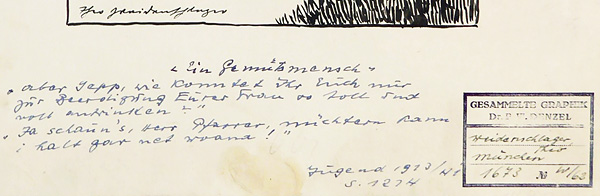 Theo Waidenschlager
"Ein Gemütsmensch"
"Aber Sepp, wie konntet Ihr Euch nur
zur Beerdigung Eurer Frau so toll und
voll antrinken?"
"Ja schaun's, Herr Pfarrer, nüchtern kann
i halt gar net woana."
Jugend 1913/41
S. 1214
GESAMMELTE GRAPHIK
Dr. DENZEL
Weidenschlager
Theo
München
1673 № 60/63